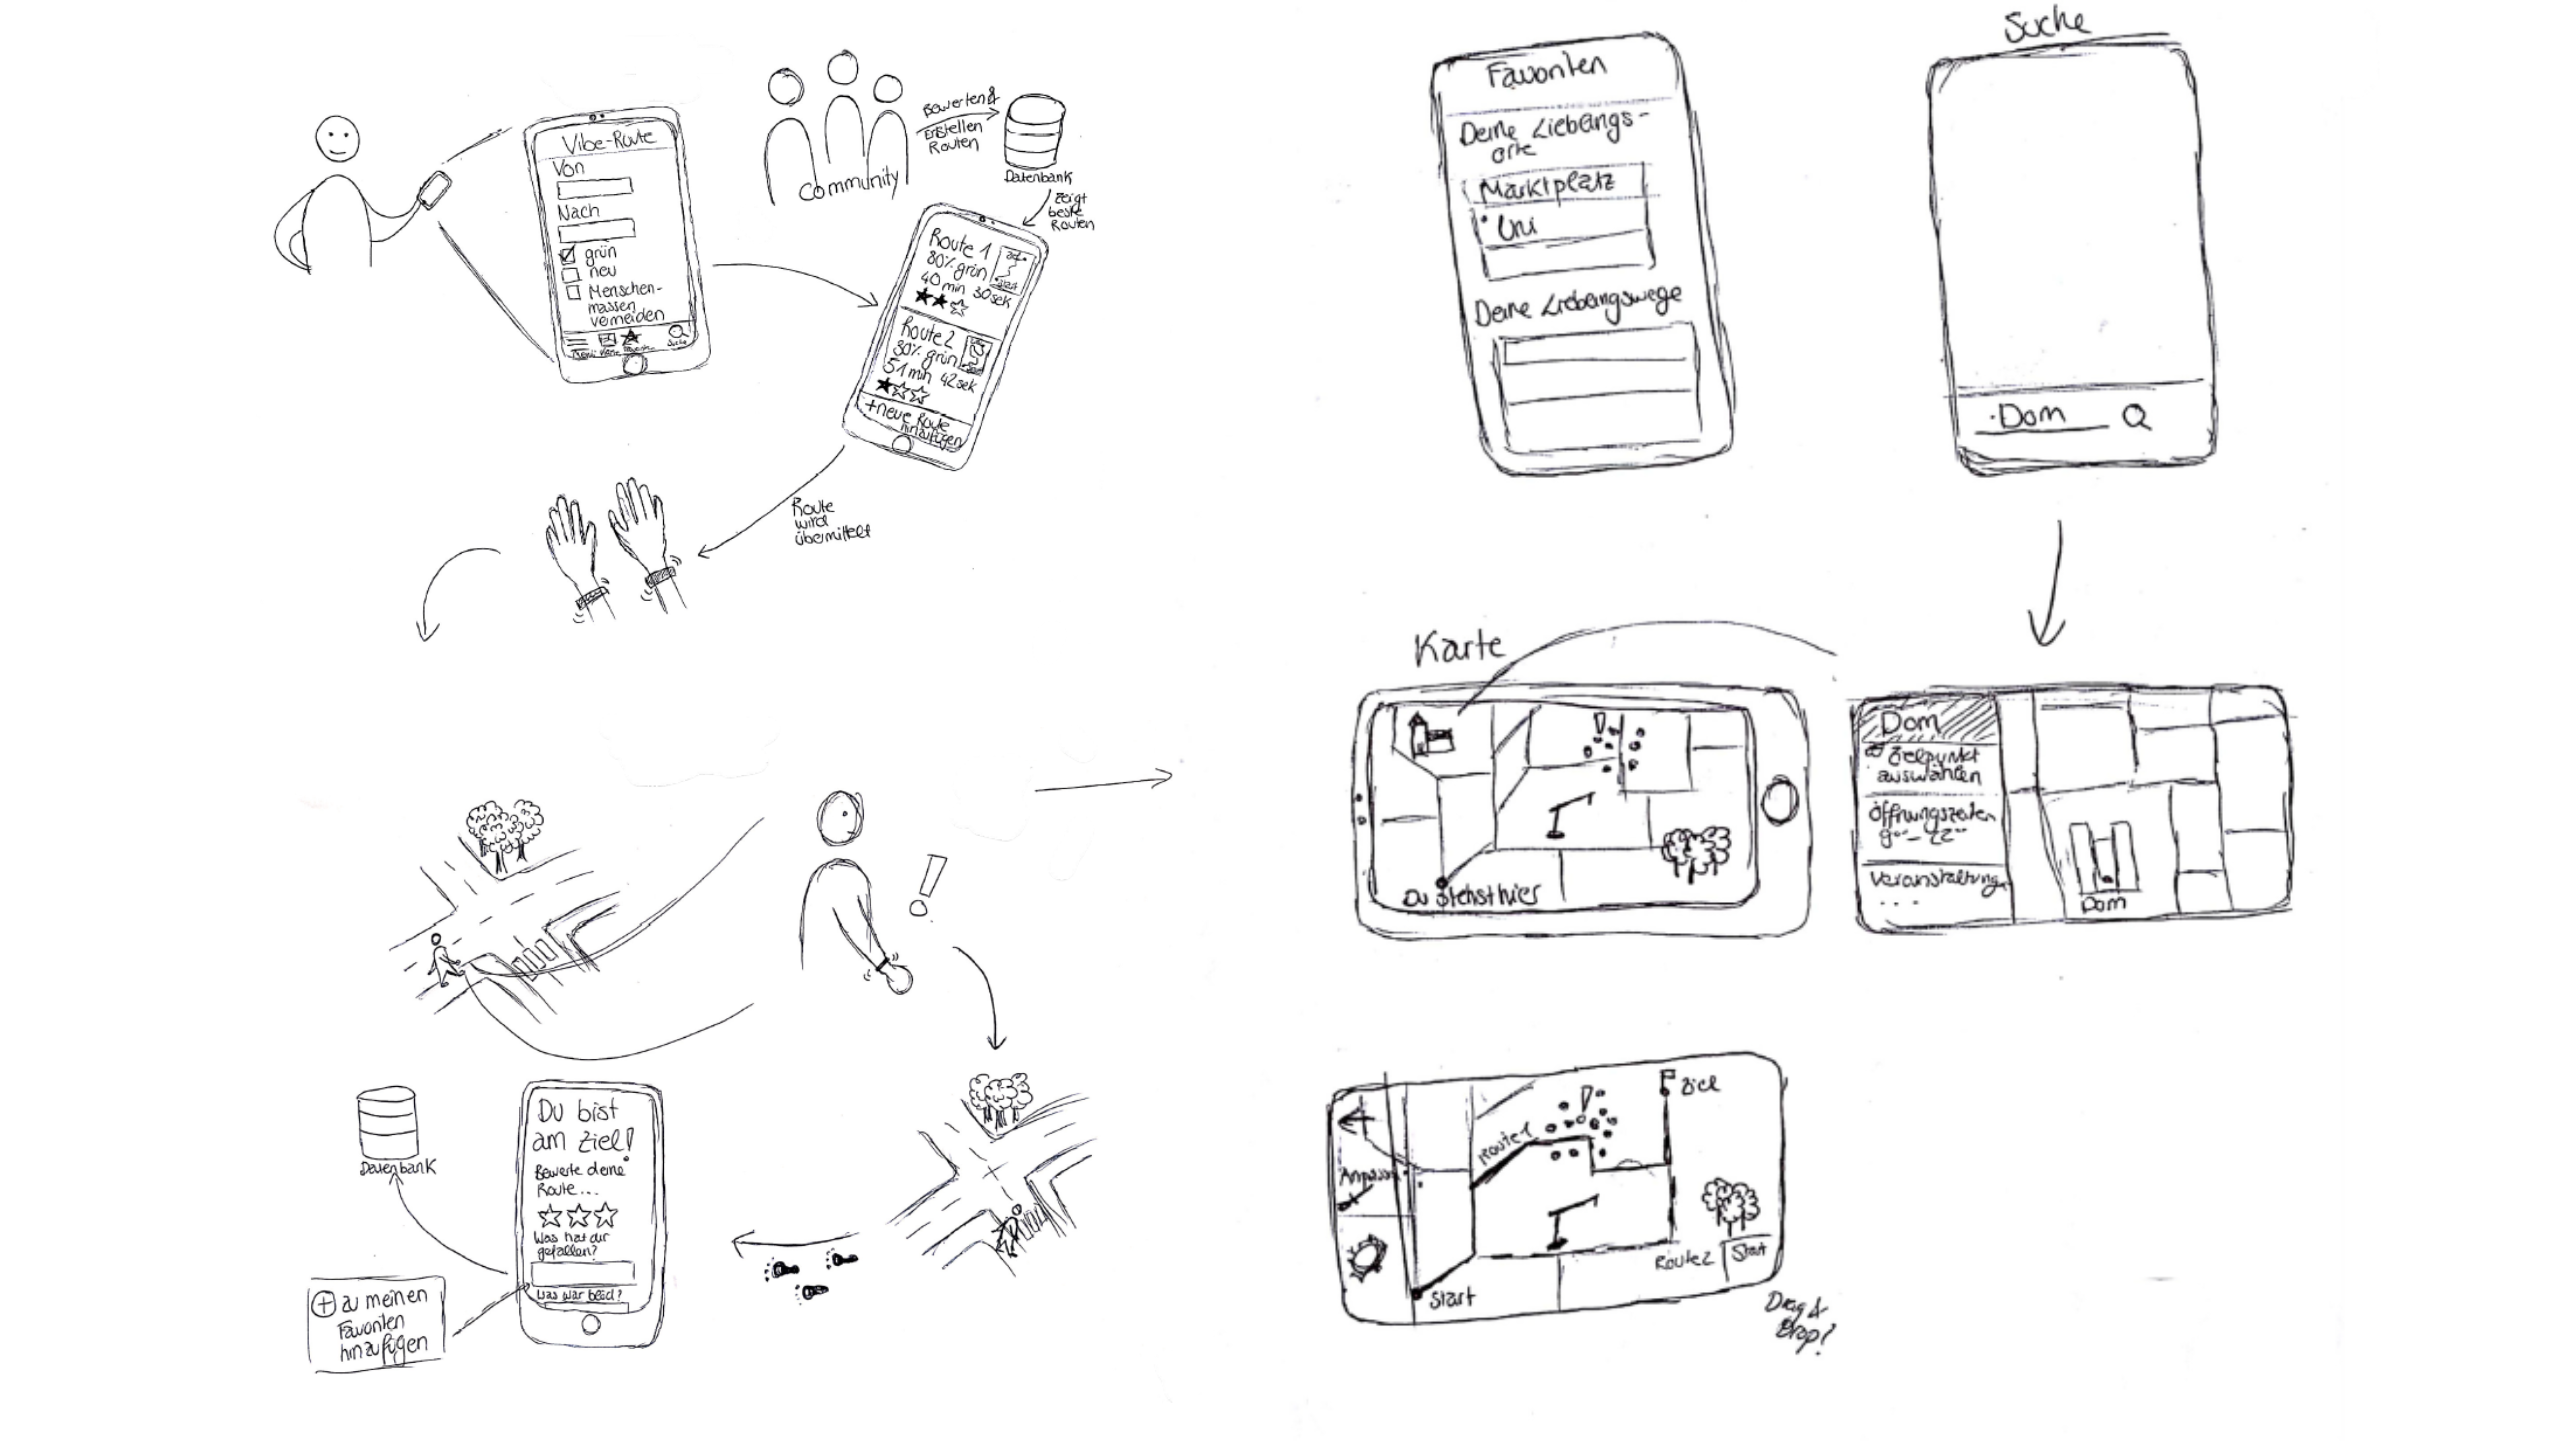 Vibe-Route
Von
Nach
grün
neu
Menschen-
massen
vermeiden
Menü Karte
Suche
Community
Bewerten &
Erstellen
Routen
Datenbank
zeigt
beste
Routen
Route 1
80% grün
40 min 30sek
Start
Route 2
30% grün
51 min 42sek
+neue Route
hinzufügen
Route
wird
übermittelt
!
Datenbank
Du bist
am Ziel!
Bewerte deine
Route...
Was hat dir
gefallen?
Was war blöd?
+ zu meinen
Favoriten
hinzufügen
Favoriten
Deine Lieblings-
orte
Marktplatz
Uni
Deine Lieblingswege
Suche
Dom
Karte
!
Du stehst hier
Dom
Zielpunkt
auswählen
Öffnungszeiten
9°° - 22°°
Veranstaltung
...
Dom
Route 1
!
Ziel
Start
Route 2
Start
Drag &
Drop!